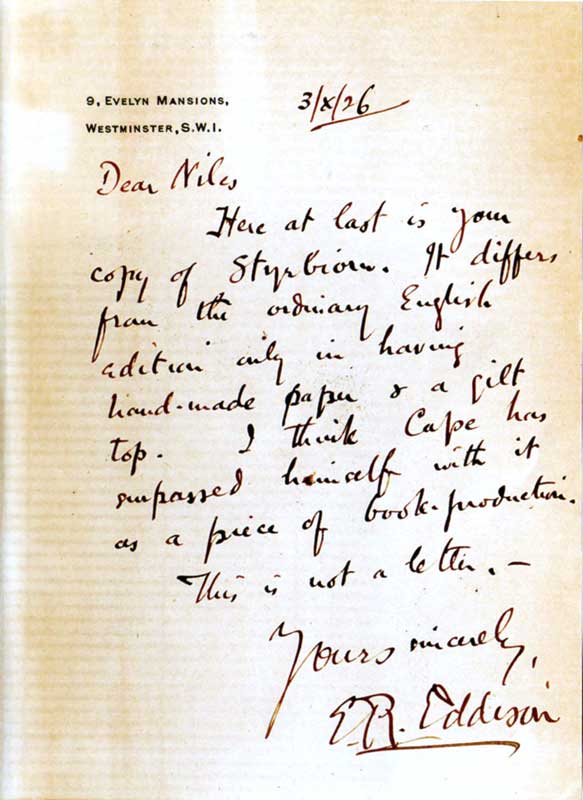 9, EVELYN MANSIONS,
WESTMINSTER, S.W.1.
3/X/26
Dear Niles
Here at last is your
copy of Styrbiorn. It differs
from the ordinary English
edition only in having
hand-made paper & a gilt
top. I think Cape has
surpassed himself with it
as a piece of book-production.
This is not a letter. —
Yours sincerely,
E.R. Eddison